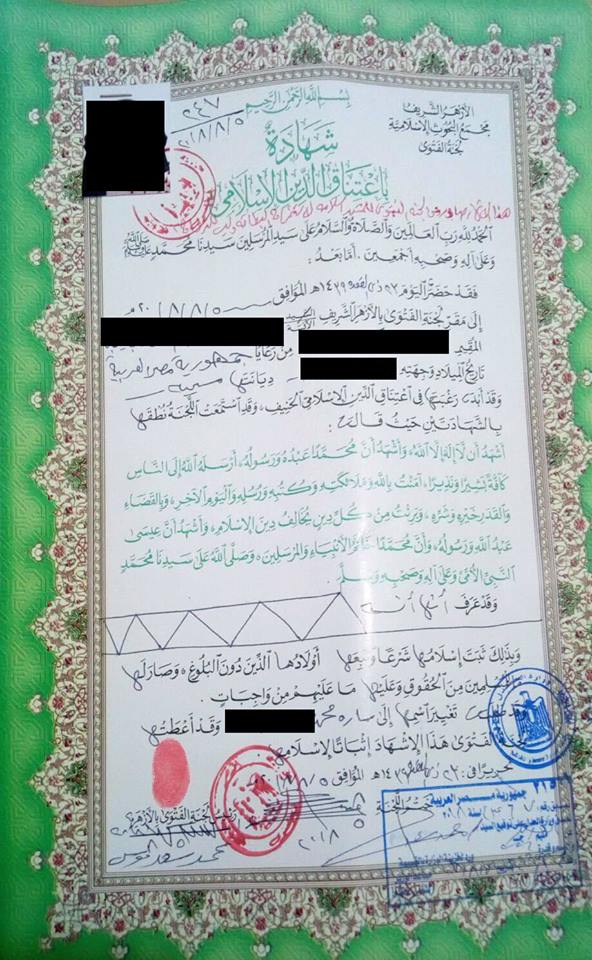 بِسْمِ اللهِ الرَّحْمٰنِ الرَّحِيْمِ
الأزهر الشريف
مجمع البحوث الإسلامية
لجنة الفتوى
٢٤٧
٢٠١٨/٨/٥
شهادة
باعتناق الدين الإسلامي
الحمد لله رب العالمين والصلاة والسلام على سيد المرسلين سيدنا محمد ﷺ
وعلى آله وصحبه أجمعين . أما بعد :
فقد حضرت اليوم ٢٣ ذي القعدة ١٤٣٩ هـ الموافق ٢٠١٨/٨/٥ م
إلى مقر لجنة الفتوى بالأزهر الشريف السيد
الآنسة
المقيم من رعايا جمهورية مصر العربية
تاريخ الميلاد وجهته ديانتها مسيحية
وقد أبدت رغبتها في اعتناق الدين الإسلامي الحنيف، وقد استمعت اللجنة نطقها
بالشهادتين حيث قالت :
أشهد أن لا إله إلا الله، وأشهد أن محمدا عبده ورسوله، أرسله الله إلى الناس
كافة بشيرا ونذيرا، آمنت بالله وملائكته وكتبه ورسله واليوم الآخر، وبالقضاء
والقدر خيره وشره، وبرئت من كل دين يخالف دين الإسلام، وأشهد أن عيسى
عبد الله ورسوله، وأن محمدا خاتم الأنبياء والمرسلين، وصلى الله على سيدنا محمد
النبي الأمي وعلى آله وصحبه وسلم .
وقد عرف
وبذلك ثبت إسلامها شرعا ويتبعها أولادها الذين دون البلوغ، وصار لها
للمسلمين من الحقوق وعليها ما عليهم من واجبات .
تغيير اسمها إلى ساره محمد وقد أعطتها
الفتوى هذا الإشهاد إثباتا لإسلامها
تحريرا في : ٢٣ ١٤٣٩ هـ الموافق ٢٠١٨/٨/٥ م
ختم اللجنة رئيس لجنة الفتوى بالأزهر
٢٠١٨
جمهورية مصر العربية